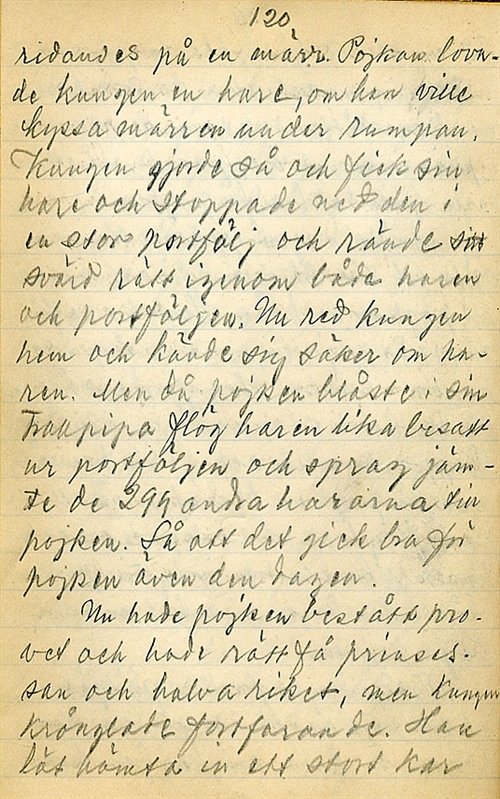 120
ridandes på en märr. Pojken lova-
de kungen en hare, om han ville
kyssa märren under rumpan.
Kungen gjorde så och fick sin
hare och stoppade ned den i
en stor portfölj och rände sitt
svärd rätt igenom båda haren
och portföljen. Nu red kungen
hem och kände sig säker om ha-
ren. Men då pojken blåste i sin
Trollpipa flög haren lika besatt
ur portföljen och sprang jäm-
te de 299 andra hararna till
pojken. Så att det gick bra för
pojken även den dagen.
Nu hade pojken bestått pro-
vet och hade rätt få prinses-
san och halva riket, men kungen
krånglade fortfarande. Han
lät hämta in ett stort kar